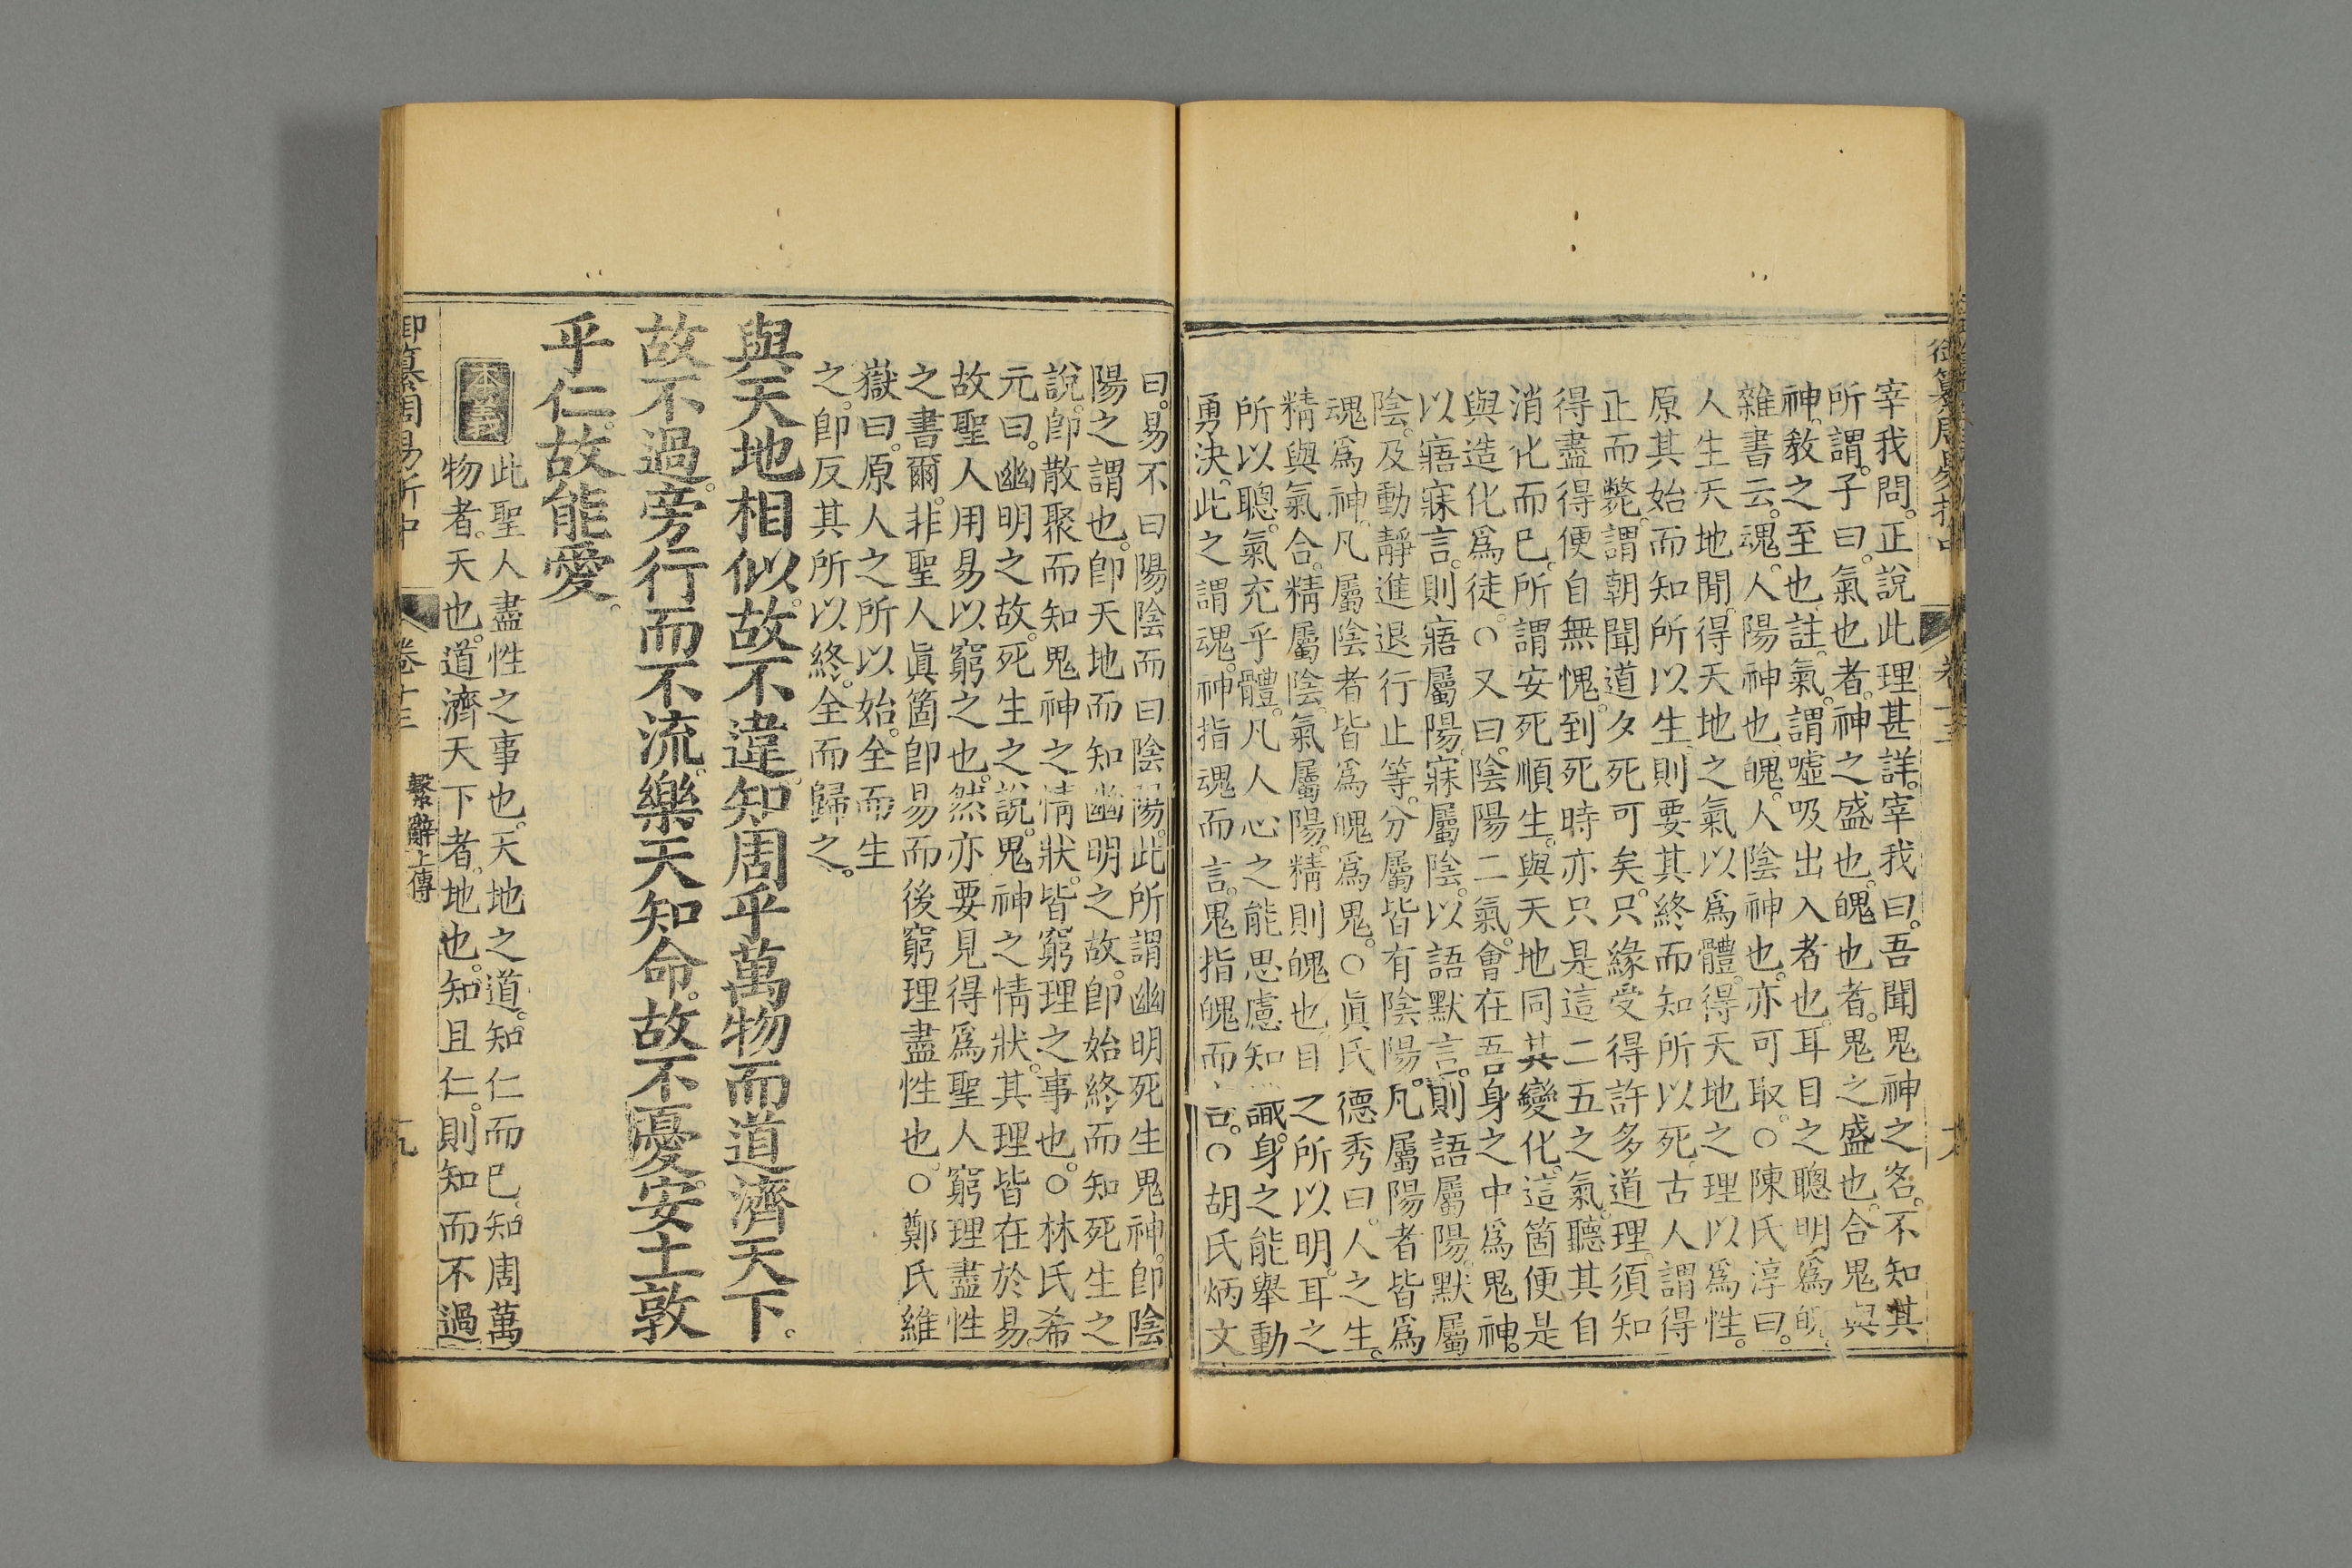 御纂周易折中
卷十三
宰我問。正說此理甚詳。宰我曰。吾聞鬼神之名。不知其
所謂。子曰。氣也者。神之盛也。魄也者。鬼之盛也。合鬼與
神。教之至也。註。氣。謂噓吸出入者也。耳目之聰明爲
雜書云。魂。人陽神也。魄。人陰神也。亦可取。○陳氏淳曰。
人生天地閒。得天地之氣以爲體。得天地之理以爲性。
原其始而知所以生。則要其終而知所以死。古人謂得
正而斃。謂朝聞道夕死可矣。只緣受得許多道理。須知
得盡得便自無愧。到死時亦只是這二五之氣。聽其自
消化而已。所謂安死順生。與天地同其變化。這箇便是
與造化爲徒。○又曰。陰陽二氣。會在吾身之中爲鬼神。
以寤寐言。則寤屬陽。寐屬陰。以語默言。則語屬陽。默屬
陰。及動靜進退行止等。分屬皆有陰陽。凡屬陽者皆爲
魂爲神。凡屬陰者皆爲魄爲鬼。○眞氏德秀曰。人之生。
精與氣合。精屬陰。氣屬陽。精則魄也。目之所以明。耳之
所以聰。氣充乎體。凡人心之能思慮知識。身之能舉動
勇決。此之謂魂。神指魂而言。鬼指魄而言。○胡氏炳文
曰。易不曰陽陰而曰陰陽。此所謂幽明死生鬼神。卽陰
陽之謂也。卽天地而知幽明之故。卽始終而知死生之
說。卽散聚而知鬼神之情狀。皆窮理之事也。○林氏希
元曰。幽明之故。死生之說。鬼神之情狀。其理皆在於易。
故聖人用易以窮之也。然亦要見得爲聖人窮理盡性
之書爾。非聖人眞箇卽易而後窮理盡性也。○鄭氏維
嶽曰。原人之所以始。全而生
之。卽反其所以終。全而歸之。
與天地相似。故不違。知周乎萬物而道濟天下。
故不過。旁行而不流。樂天知命。故不憂。安土敦
乎仁。故能愛。
本義
此聖人盡性之事也。天地之道。知仁而已。知周萬
物者。天也。道濟天下者。地也。知且仁。則知而不過
御纂周易折中
卷十三
繫辭上傳